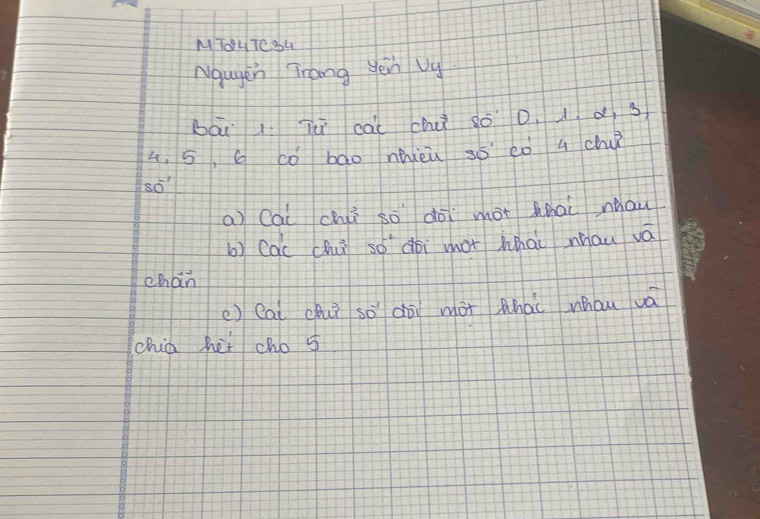 MT24TC34
Nguyễn Trang Yến Vy
Bài 1: Từ các chữ số 0, 1, 2, 3,
4, 5, 6 có bao nhiêu số có 4 chữ
số
a) Các chữ số đôi một khác nhau
b) Các chữ số đôi một khác nhau và
chẵn
c) Các chữ số đôi một khác nhau và
chia hết cho 5